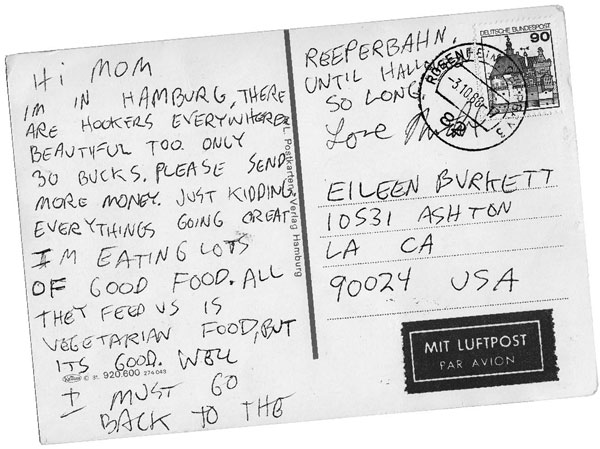 HI MOM
IM IN HAMBURG, THERE
ARE HOOKERS EVERYWHERE
BEAUTIFUL TOO. ONLY
30 BUCKS. PLEASE SEND
MORE MONEY. JUST KIDDING.
EVERYTHINGS GOING GREAT
IM EATING LOTS
OF GOOD FOOD. ALL
THEY FEED US IS
VEGETARIAN FOOD, BUT
ITS GOOD. WELL
I MUST GO
BACK TO THE
© 31. 920.600 274 043
L. Postkarten-Verlag Hamburg
REEPERBAHN.
UNTIL
SO LONG
Love
DEUTSCHE BUNDESPOST
90
EILEEN BURKETT
10531 ASHTON
LA CA
90024 USA
MIT LUFTPOST
PAR AVION